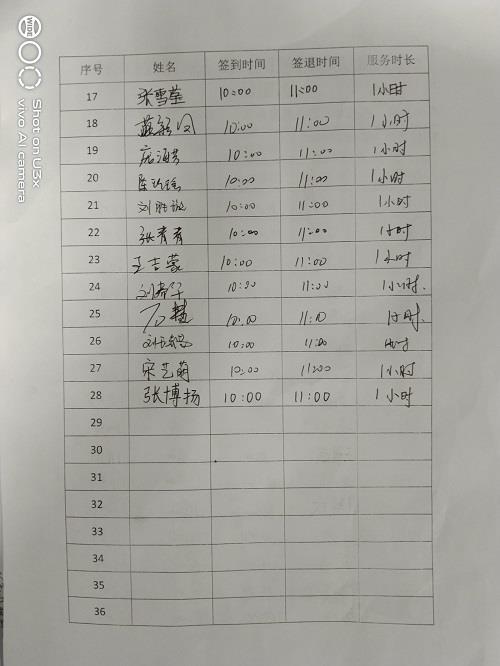 序号 姓名 签到时间 签退时间 服务时长
17 张雪莹 10:00 11:00 1小时
18 10:00 11:00 1小时
19 10:00 11:00 1小时
20 10:00 11:00 1小时
21 10:00 11:00 1小时
22 张青青 10:00 11:00 1小时
23 王吉蒙 10:00 11:00 1小时
24 10:00 11:00 1小时.
25 10:10 11:10 1小时.
26 10:00 11:00 1小时
27 宋艺萌 10:00 11:00 1小时
28 张博扬 10:00 11:00 1小时
29
30
31
32
33
34
35
36
Shot on U3x
vivo AI camera